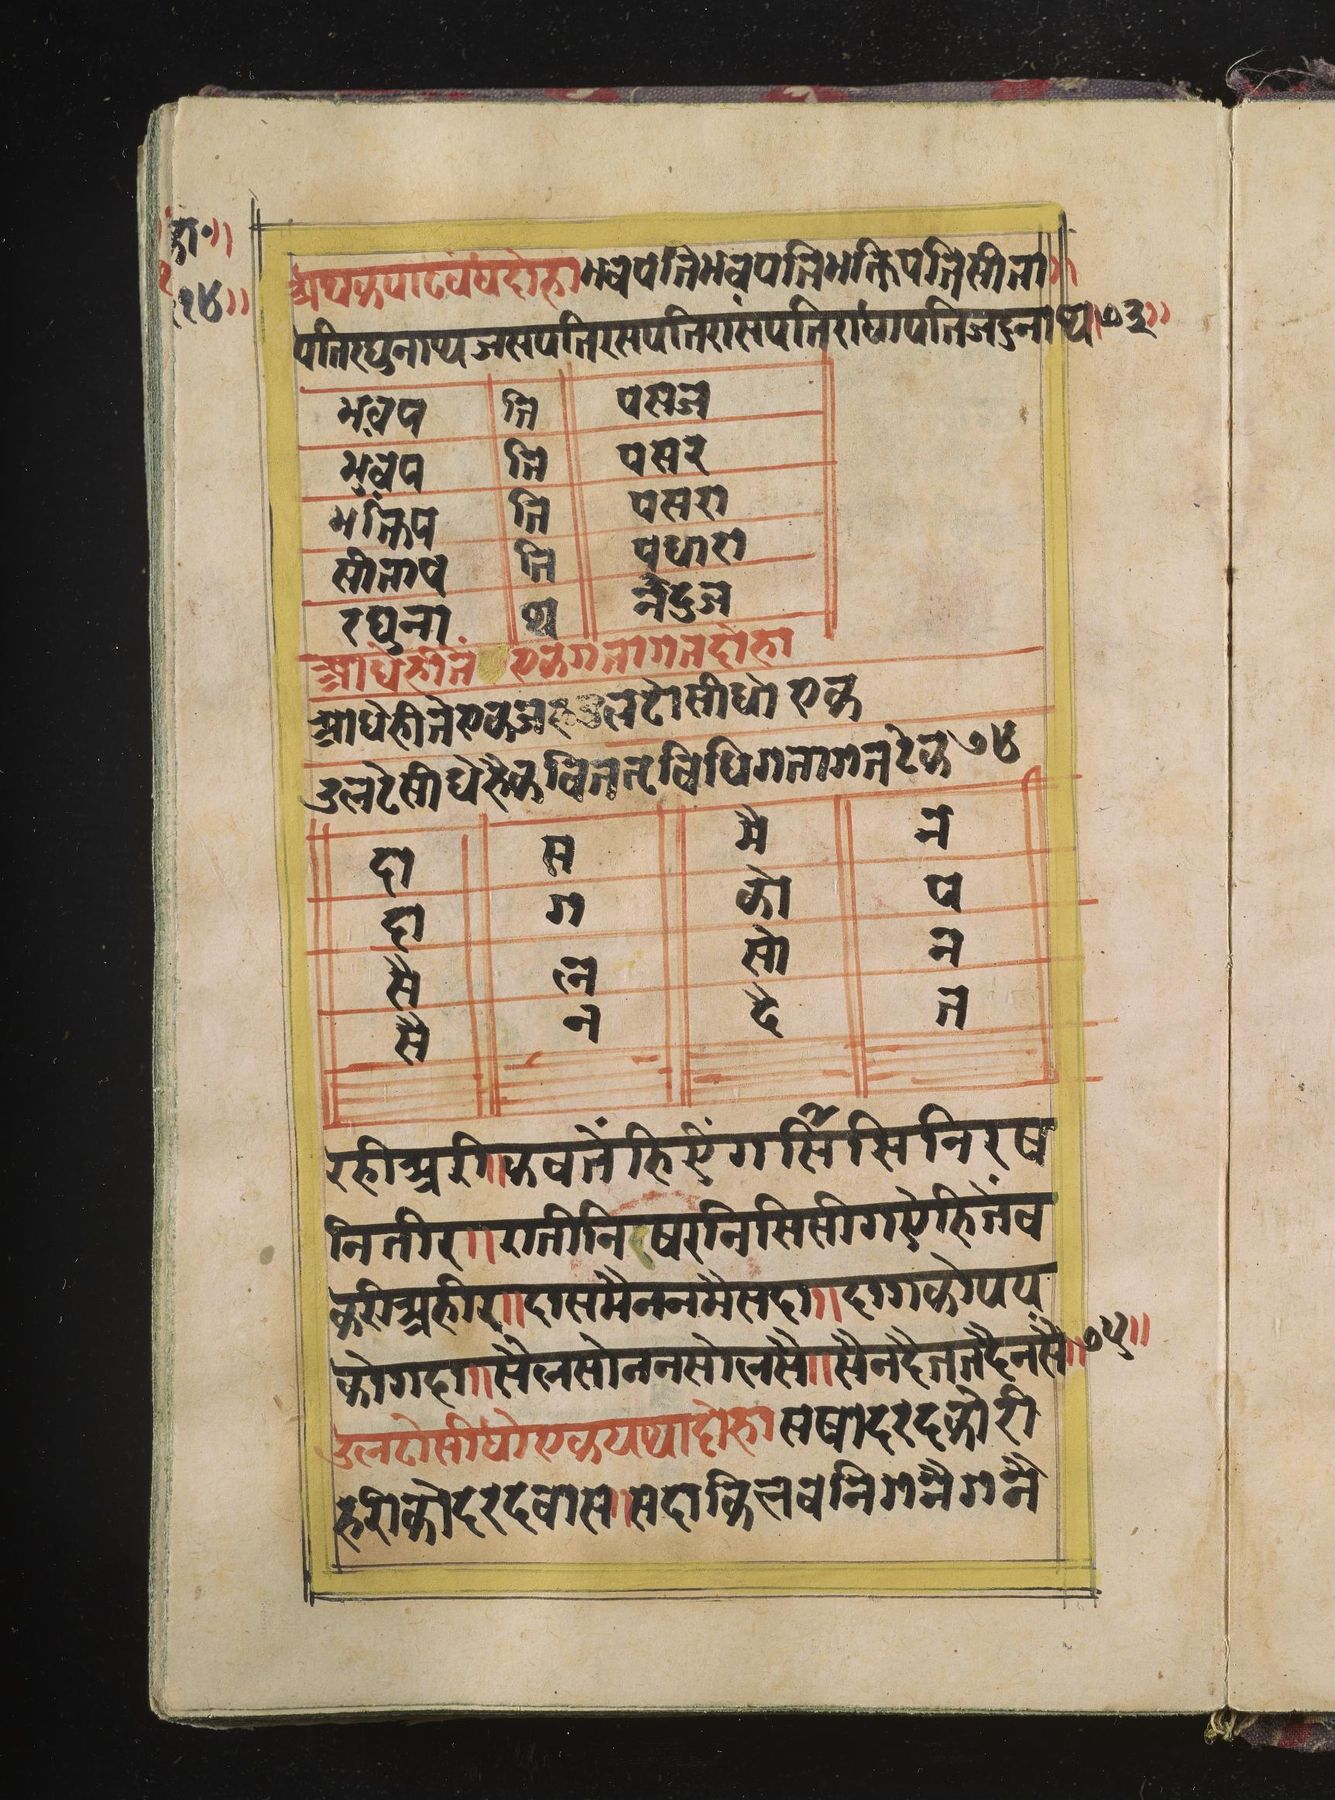 का॰॥
१४॥
अथकपाटबंधदोहा भवपतिभवपतिभक्तिपतिसीता॥
पतिरघुनाथजसपतिरसपतिरासपतिराधापतिजदुनाथ॥७३॥
भवप ति पसज
भवप ति पसर
भक्तिप ति पसरा
सीताप ति पधारा
रघुना थ नदुज
आधेहीतें एकगतागतदोहा
आधेहीते एकजहउलटोसीधो एक
उलटेसीधेहैकवितत्रिविधिगतागतटेक७४
दा स मै न
दा ग को प
सै ल सो न
सै न दै त
रहीअरी॥कबतेंहिऐंगसिंसिनिरष
नितीर॥रातीनिरषरनिसिसीगऐहितेंब
करीअहीर॥दासमैननमैसदा॥दागकोपप
कोगदा॥सैलसोननसोलसै॥सैनदैततदैनसै॥७५॥
उलटोसीधोएकयथादोहा सषादरदकोरी
हरीकोदरदषास॥सदाकिलबनिगनैगनै